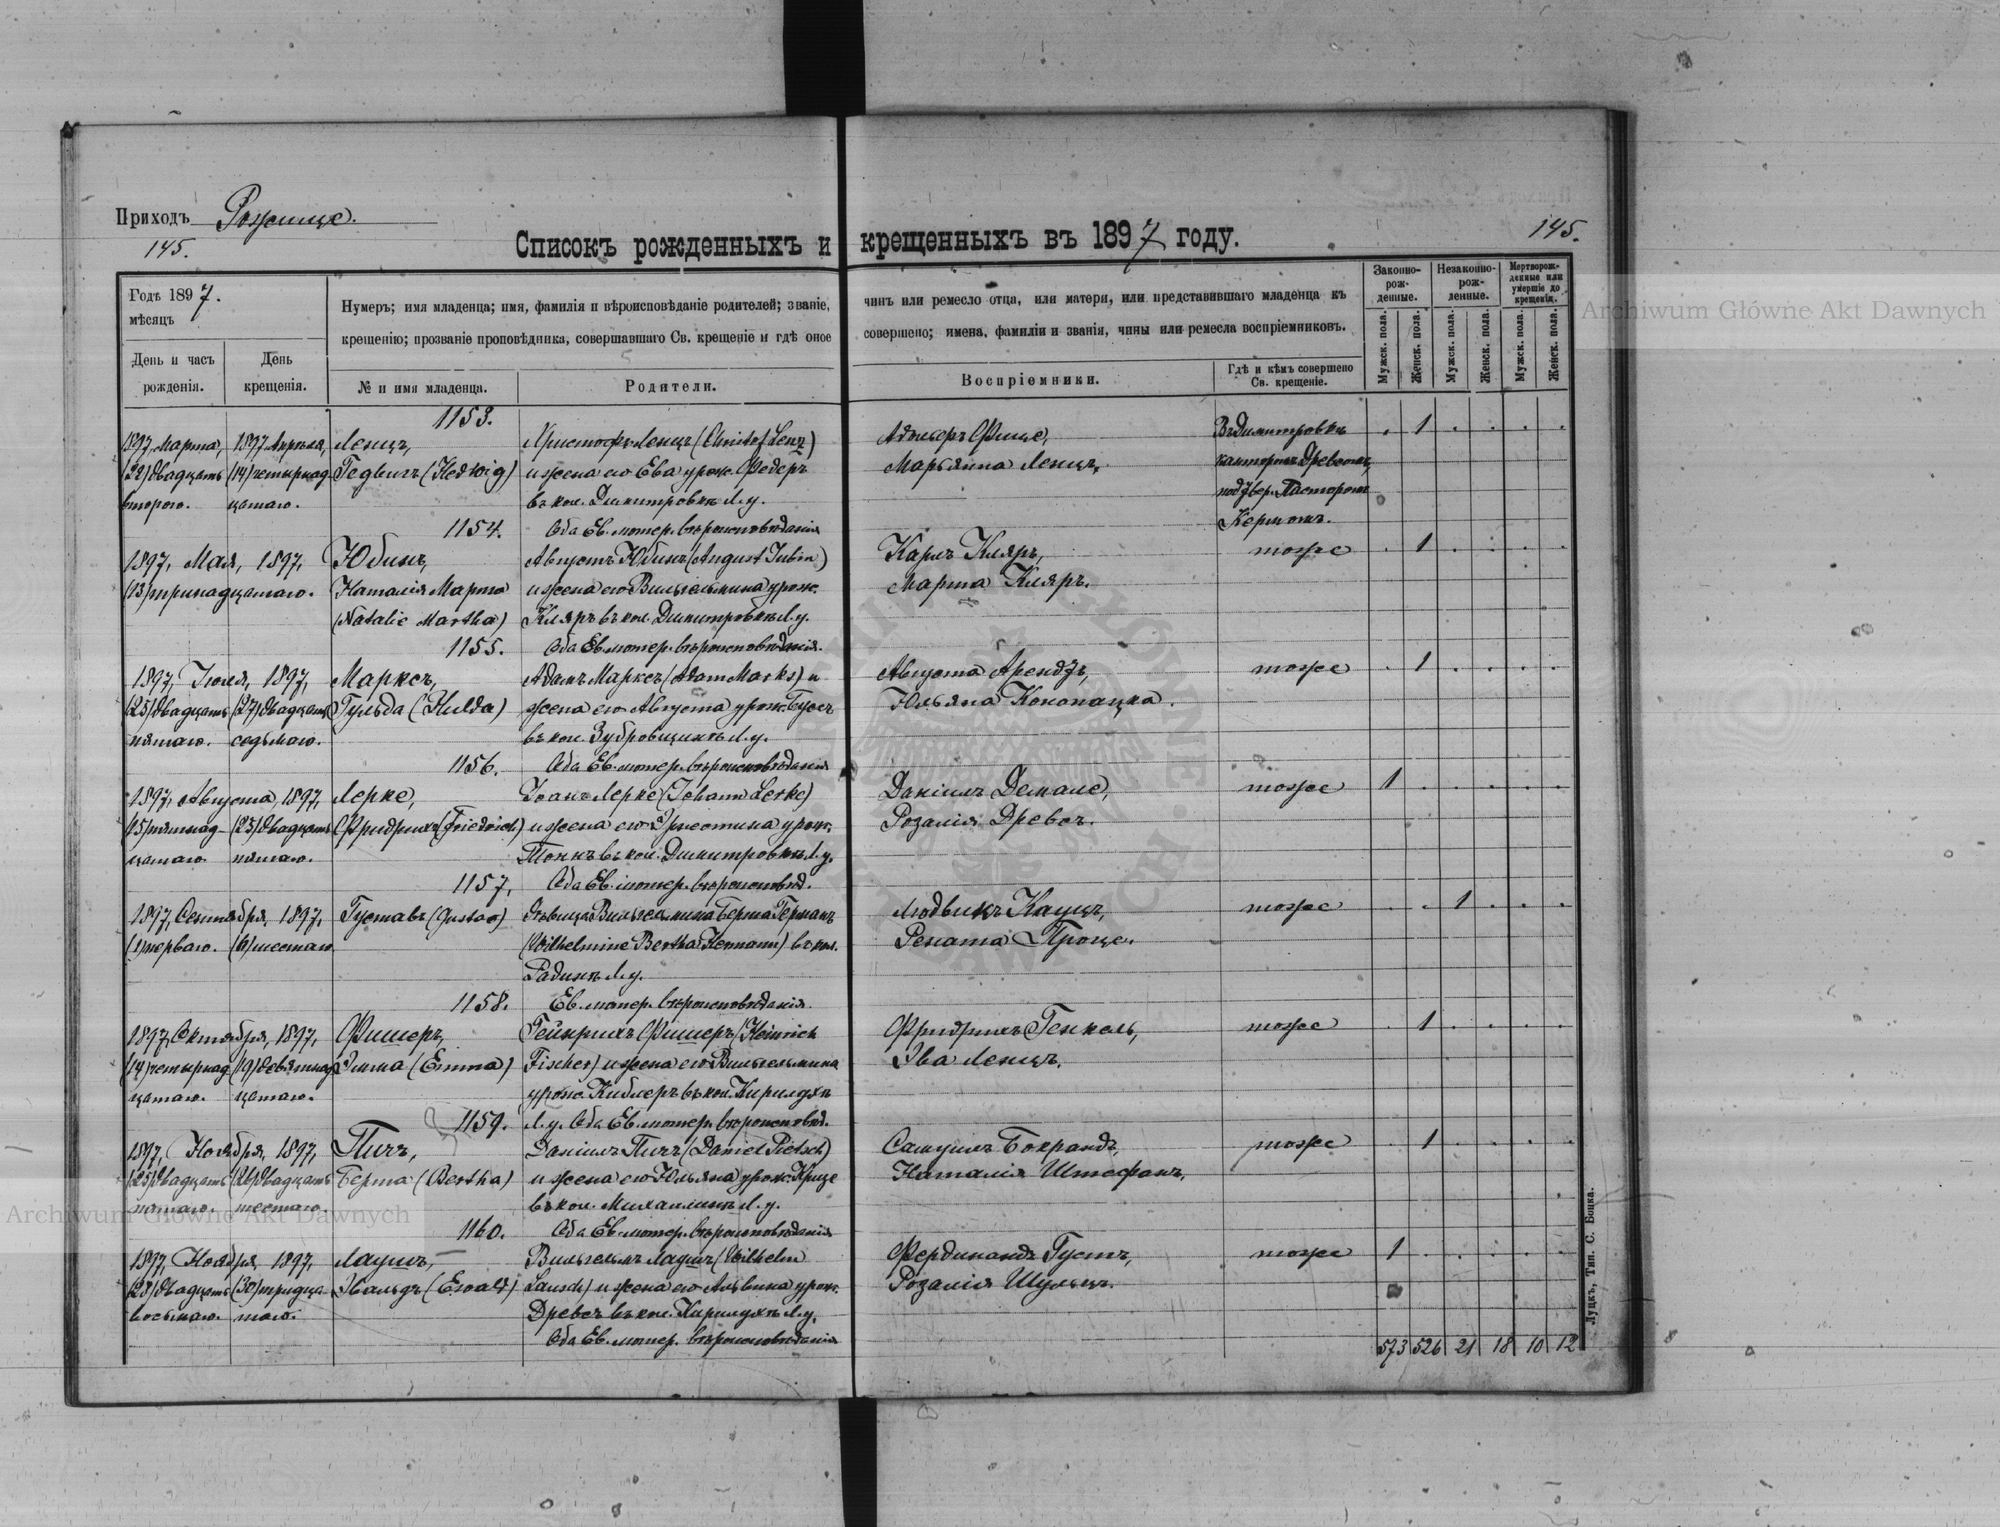 Приходъ Рожище.
145.
145.
Списокъ рожденныхъ и крещенныхъ въ 1897 году.
Годъ 1897.
мѣсяцъ
День и часъ рожденія.
День крещенія.
Нумеръ; имя младенца; имя, фамилія и вѣроисповѣданіе родителей; званіе, чинъ или ремесло отца, или матери, или представившаго младенца къ
крещенію; прозваніе проповѣдника, совершавшаго Св. крещеніе и гдѣ оное совершено; имена, фамиліи и званія, чины или ремесла воспріемниковъ.
№ и имя младенца.
Родители.
Воспріемники.
Гдѣ и кѣмъ совершено Св. крещеніе.
Законно-рож-денные.
Незаконно-рож-денные.
Мертворож-денные или умершіе до крещенія.
Мужск. пола.
Женск. пола.
Мужск. пола.
Женск. пола.
Мужск. пола.
Женск. пола.
1153.
1897, Марта, 1897 Апрѣля, Ленцъ, Христофъ Ленцъ (Christof Lenz) Адольфъ Фице, Въ Димитровкѣ . 1 . . . .
(22) двадцать (14) четырнад- Гедвигъ (Hedwig) и жена его Ева урож. Федеръ Марьянна Ленцъ. канторомъ Древсомъ,
второго. цатаго. въ кол. Димитровкѣ Л. у. подтвер. Пасторомъ
1154. Оба Ев. лютер. вѣроисповѣданія Кермомъ.
1897, Мая, 1897, Юбинъ, Августъ Юбинъ (August Jubin) Карлъ Кляръ, тоже . 1 . . . .
(13) тринадцатаго. Наталія Марта и жена его Вильгельмина урож. Марта Кляръ.
(Natalie Martha) Кляръ въ кол. Димитровкѣ Л. у.
1155. Оба Ев. лютер. вѣроисповѣданія.
1897, Іюля, 1897, Марксъ, Адамъ Марксъ (Adam Marks) и Августа Арендъ, тоже . 1 . . . .
(25) двадцать (27) двадцать Гульда (Hulda) жена его Августа урож. Буссъ Юльяна Конопацка.
пятаго. седьмого. въ кол. Зубровщинѣ Л. у.
1156. Оба Ев. лютер. вѣроисповѣданія
1897, Августа, 1897, Лерке, Іоанъ Лерке (Johann Lerke) Даніилъ Демале, тоже 1 . . . . .
(15) пятнад- (25) двадцать Фридрихъ (Friedrich) и жена его Эрнестина урож. Розалія Древсъ.
цатаго. пятаго. Тоннъ въ кол. Димитровкѣ Л. у.
1157, Оба Ев. лютер. вѣроисповѣд.
1897, Сентября, 1897, Густавъ (Gustav) дѣвица Вильгельмина Берта Германъ Людвикъ Кауцъ, тоже . . 1 . . .
(1) перваго. (6) шестаго. (Wilhelmine Bertha Hermann) въ кол. Рената Проце.
Радинѣ Л. у.
1158. Ев. лютер. вѣроисповѣданія.
1897, Октября, 1897, Фишеръ, Гейнрихъ Фишеръ (Heinrich Фридрихъ Генкель, тоже . 1 . . . .
(14) четырнад- (19) девятнад- Эмма (Emma) Fischer) и жена его Вильгельмина Эва Ленцъ.
цатаго. цатаго. урож. Киблеръ въ кол. Кирилухѣ
1159. Л. у. Оба Ев. лютер. вѣроисповѣд.
1897, Ноября, 1897, Пичъ, Даніилъ Пичъ (Daniel Pietsch) Самуилъ Бокрандъ, тоже . 1 . . . .
(25) двадцать (26) двадцать Берта (Bertha) и жена его Юльяна урож. Крице Наталія Штефанъ.
пятаго. шестаго. въ кол. Михалинѣ Л. у.
1160. Оба Ев. лютер. вѣроисповѣданія
1897, Ноября, 1897, Лаушъ, Вильгельмъ Лаушъ (Wilhelm Фердинандъ Густъ, тоже 1 . . . . .
(28) двадцать (30) тридца- Эвальдъ (Ewald) Lausch) и жена его Альвина урож. Розалія Шульцъ.
восьмаго. таго. Древсъ въ кол. Кирилухѣ Л. у.
Оба Ев. лютер. вѣроисповѣданія
573 526 21 18 10 12
Луцкъ, Тип. С. Боцка.
Archiwum Główne Akt Dawnych
Archiwum Główne Akt Dawnych